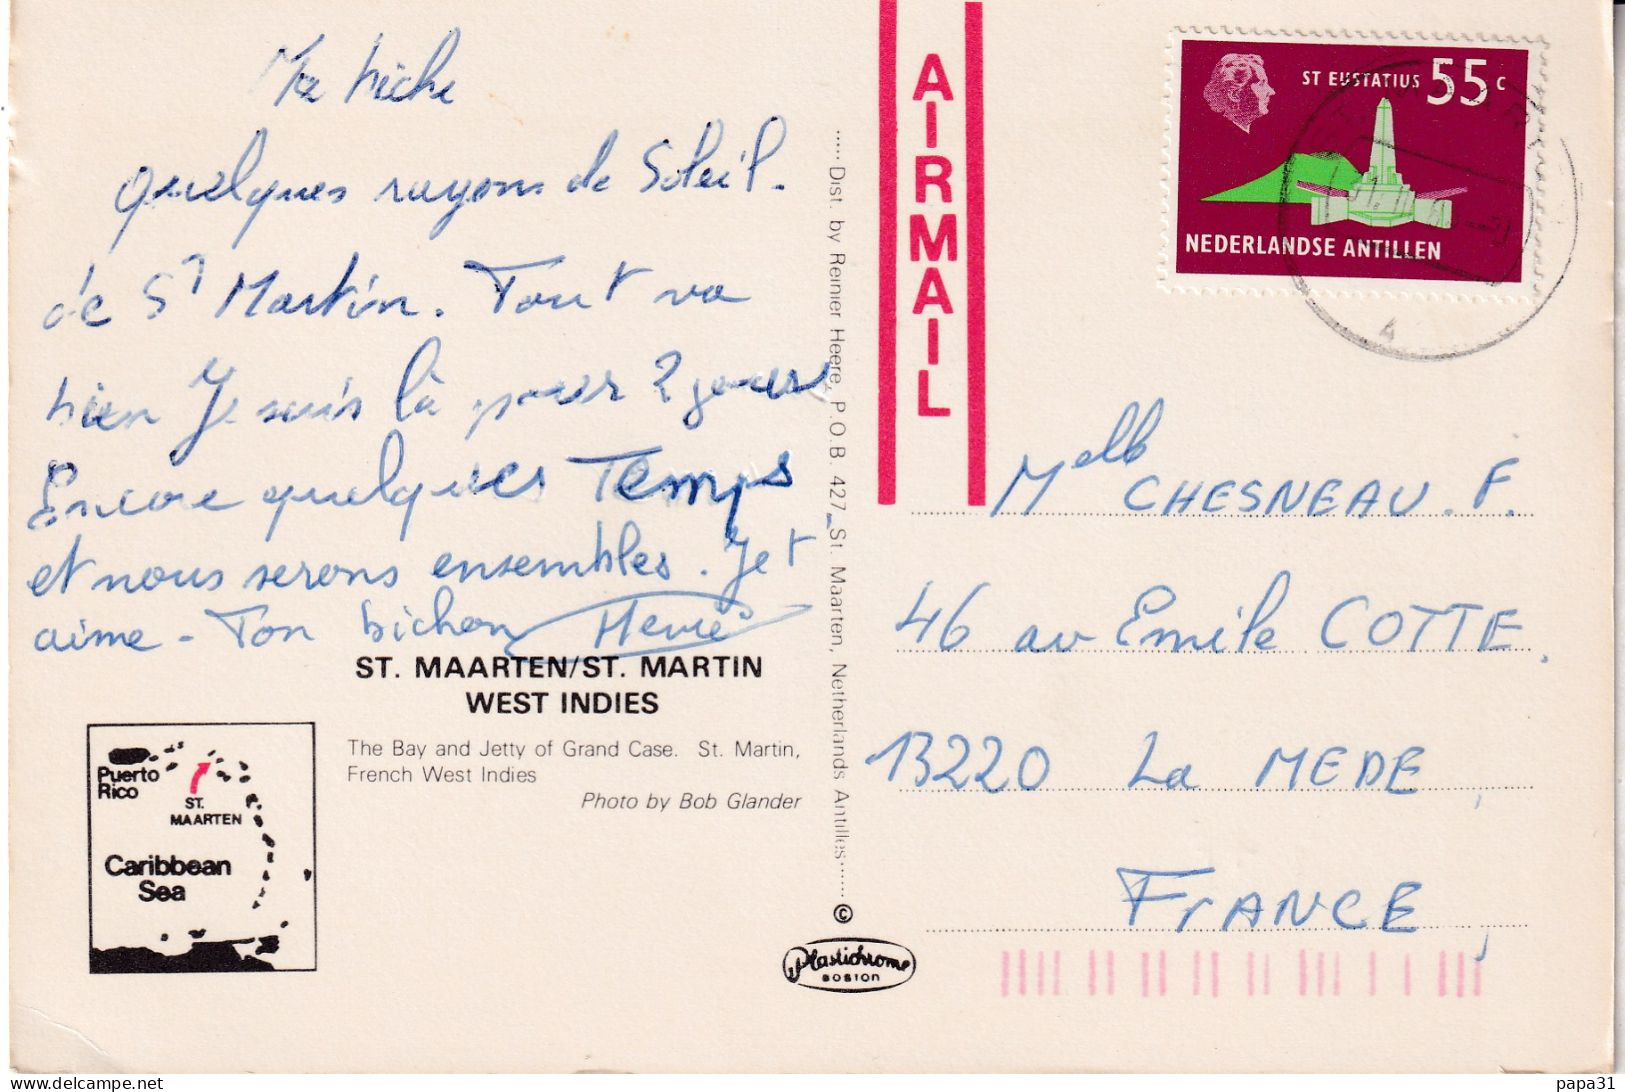 Ma biche
quelques rayons de Soleil.
de St Martin. Tout va
bien Je suis là pour 2 jours
Encore quelques Temps
et nous serons ensembles. Je t
aime - Ton bichon Hervé
ST. MAARTEN/ST. MARTIN
WEST INDIES
The Bay and Jetty of Grand Case. St. Martin,
French West Indies
Photo by Bob Glander
Puerto
Rico
ST.
MAARTEN
Caribbean
Sea
Dist. by Reinier Heere, P.O.B. 427, St. Maarten, Netherlands Antilles
©
Plastichrome
BOSTON
AIRMAIL
ST EUSTATIUS 55 c
NEDERLANDSE ANTILLEN
4
Melle CHESNEAU. F.
46 av Emile COTTE.
13220 La MEDE,
FrANCE,
papa31